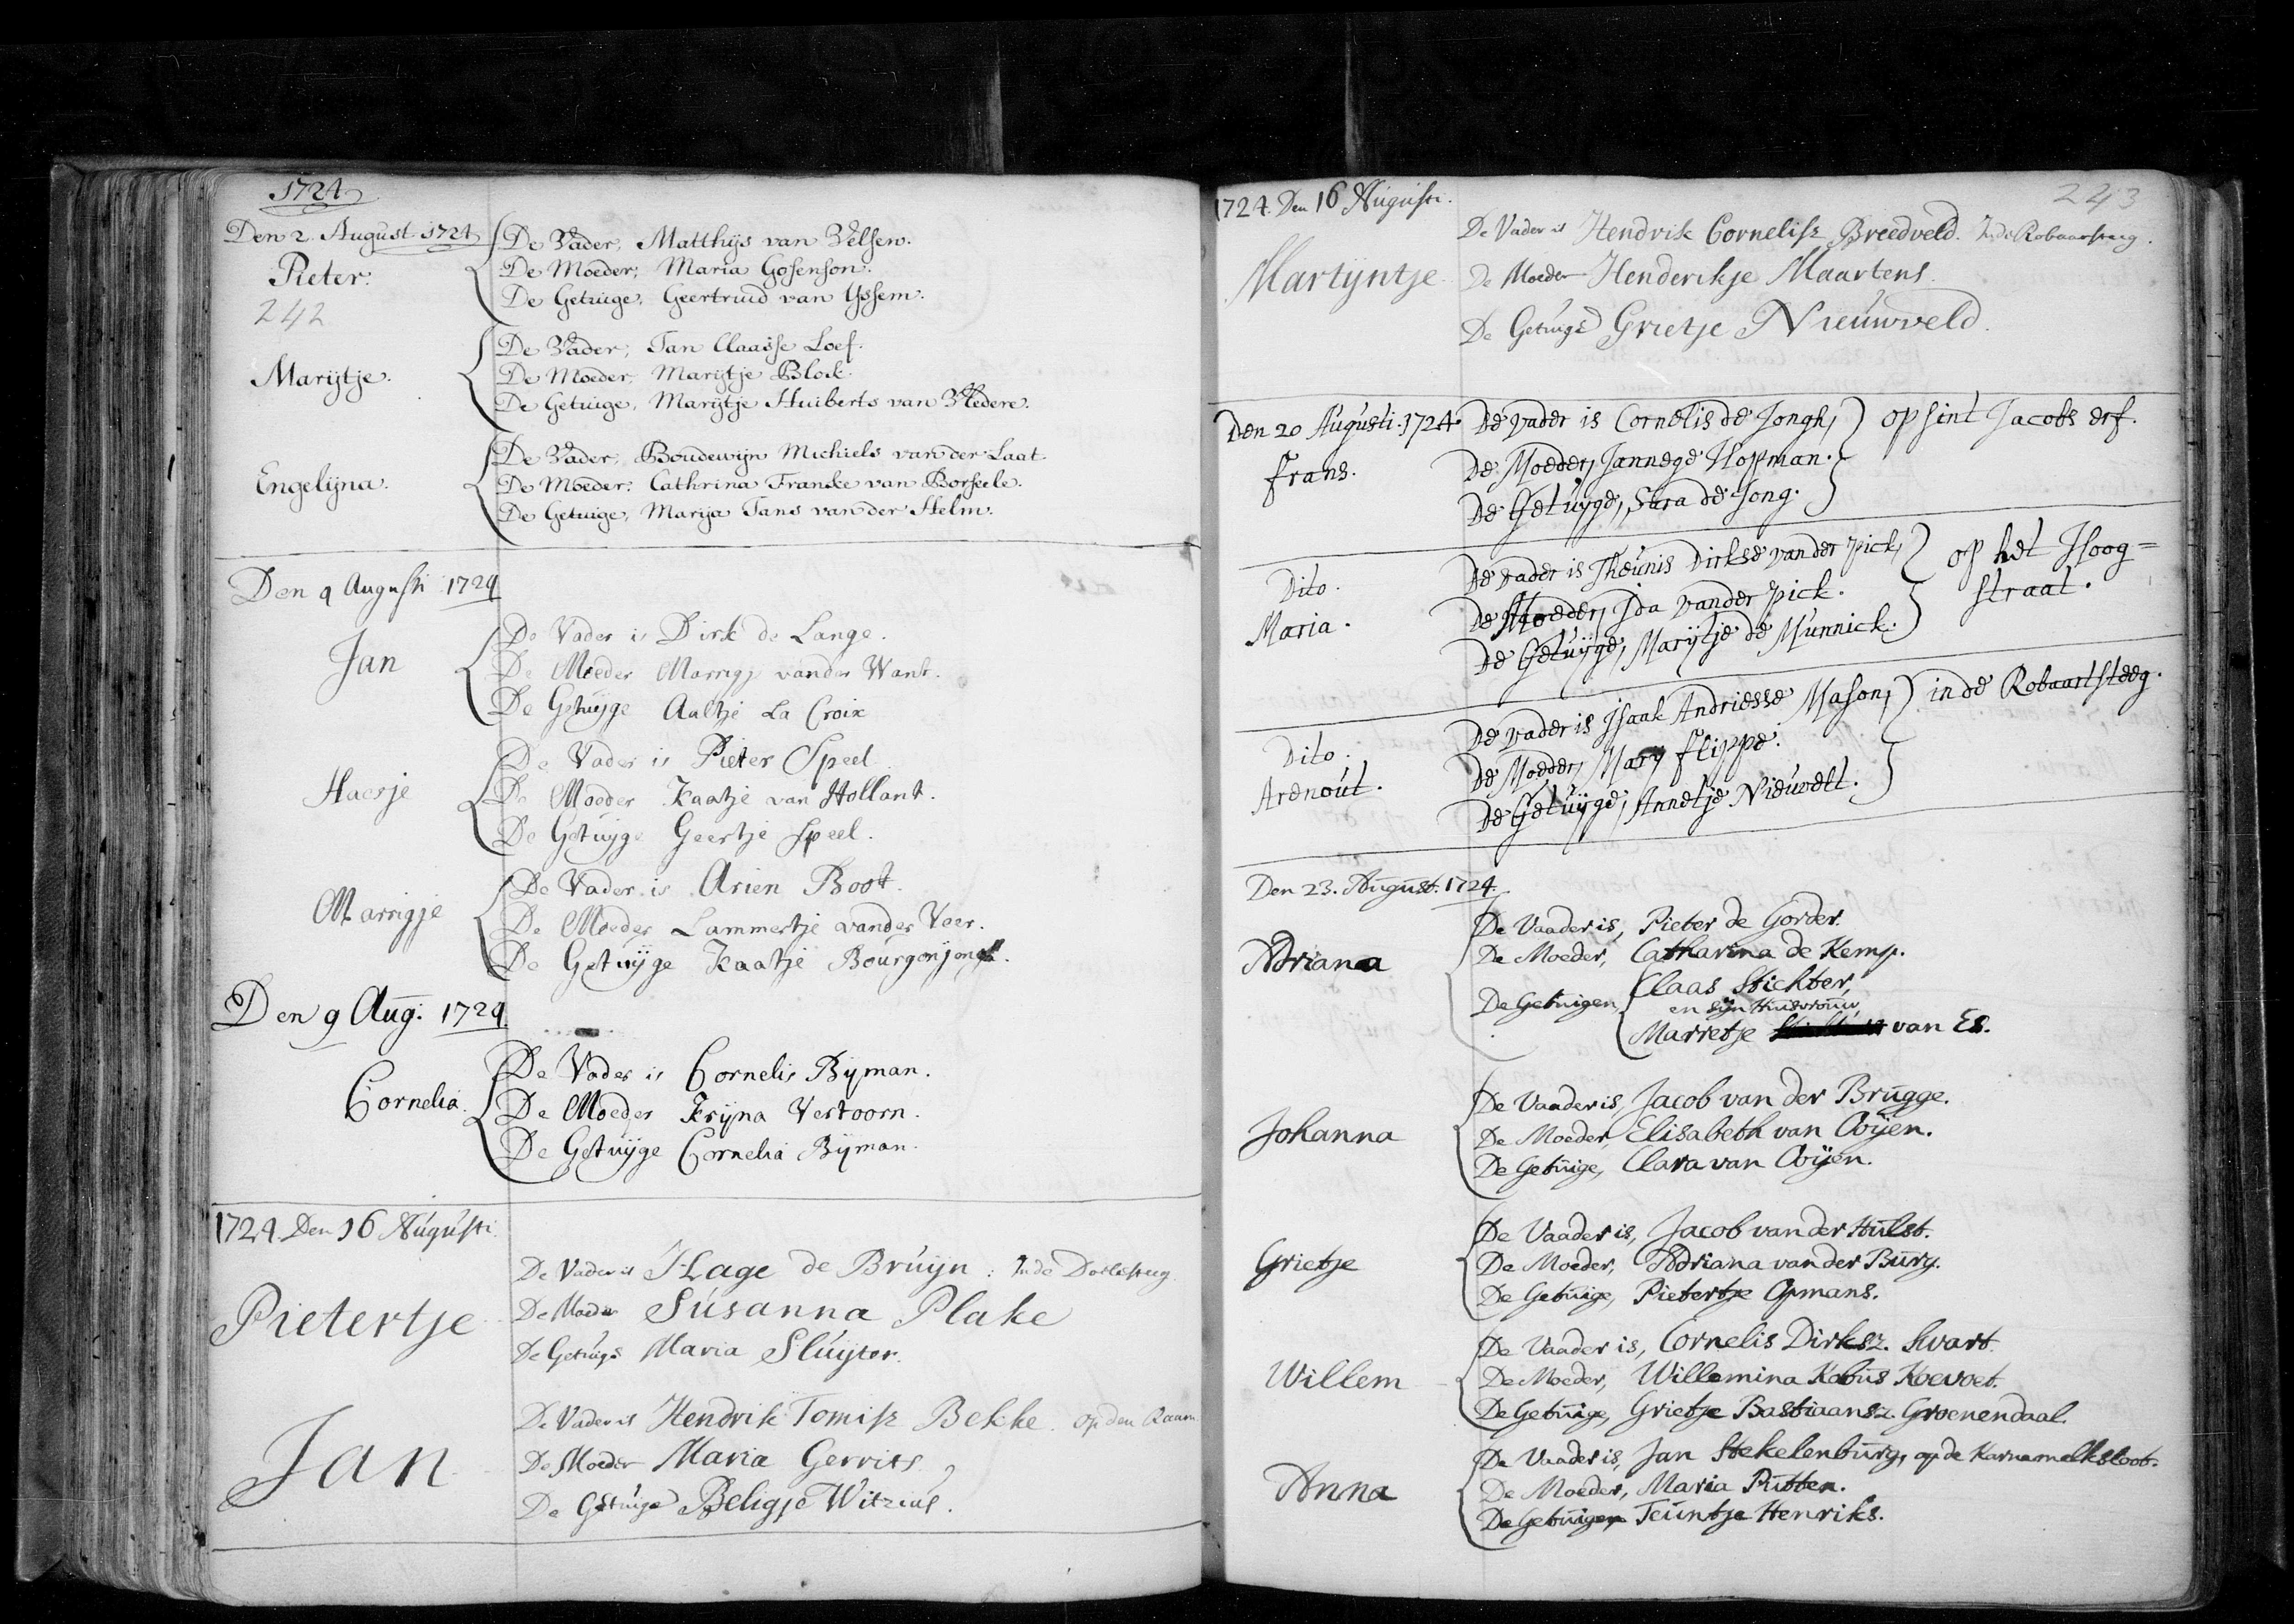 1724
Den 2. August. 1724
Pieter.
242
De Vader, Matthys van Velsen.
De Moeder; Maria Gosenson.
De Getuige, Geertruid van Yssem.
Marijtje.
De Vader; Jan Claasse Loef.
De Moeder, Marijtje Block.
De Getuige, Marijtje Huiberts van Vledere.
Engelijna.
De Vader, Boudewijn Michiels van der Laat.
De Moeder: Cathrina Franke van Borseele.
De Getuige, Marija Jans van der Helm.
Den 9 Augusti 1724
Jan
De Vader is Dirk de Lange.
De Moeder Marrigje vander Want.
De Getuijge Aaltje La Croix
Haesje
De Vader is Pieter Speel
De Moeder Kaatje van Hollant.
De Getuijge Geertje Speel.
Marrigje
De Vader is Arien Boot.
De Moeder Lammertje vander Veer.
De Getuijge Kaatje Bourgonjong.
Den 9 Aug. 1724
Cornelia.
De Vader is Cornelis Bijman.
De Moeder Krijna Vertoorn.
De Getuijge Cornelia Bijman.
1724. Den 16 Augusti.
Pietertje
De Vader is Hage de Bruijn: In de Doelesteeg.
De Moeder Susanna Plake
De Getuige Maria Sluijter.
Jan
De Vader is Hendrik Tomisz Bekke. op den Raam.
De Moeder Maria Gerrits
De Getuige Beligje Witzius.
1724. Den 16 Augusti.
243
Martijntje
De Vader is Hendrik Cornelisz Breedveld. In de Robaarsteeg.
De Moeder Henderikje Maartens.
De Getuige Grietje Nieuwveld.
Den 20 Augusti. 1724.
Frans.
De Vader is Cornelis de Jongh, op sint Jacobs erf.
De Moeder, Jannege Hopman.
De Getuyge, Sara de Jong.
Dito.
Maria.
De Vader is Theunis Dirkse vander Pick, op het Hoog=
straat.
De Moeder, Ida vander Pick.
De Getuijge, Marijtje de Munnick.
Dito.
Arenout.
De Vader is Isaak Andriesse Mason, in de Robaartsteeg.
De Moeder, Mary Flippe.
De Getuijge, Annetje Nieuvelt.
Den 23. August. 1724.
Adriana
De Vaader is, Pieter de Gorder.
De Moeder, Catharina de Kemp.
De Getuigen, Claas Stichter,
en sijn Huisvrouw,
Marretje van Es.
Johanna
De Vaader is, Jacob van der Brugge.
De Moeder, Elisabeth van Ooijen.
De Getuige, Clara van Ooijen.
Grietje
De Vaader is, Jacob van der Hulst.
De Moeder, Adriana van der Burg.
De Getuige, Pietertje Opmans.
Willem
De Vaader is, Cornelis Dirksz. Swart.
De Moeder, Willemina Kobus Koevoet.
De Getuige, Grietje Bastiaansz. Groenendaal.
Anna
De Vaader is, Jan Stekelenburg, op de Karnemelksloot.
De Moeder, Maria Putten.
De Getuigen Teuntje Henriks.